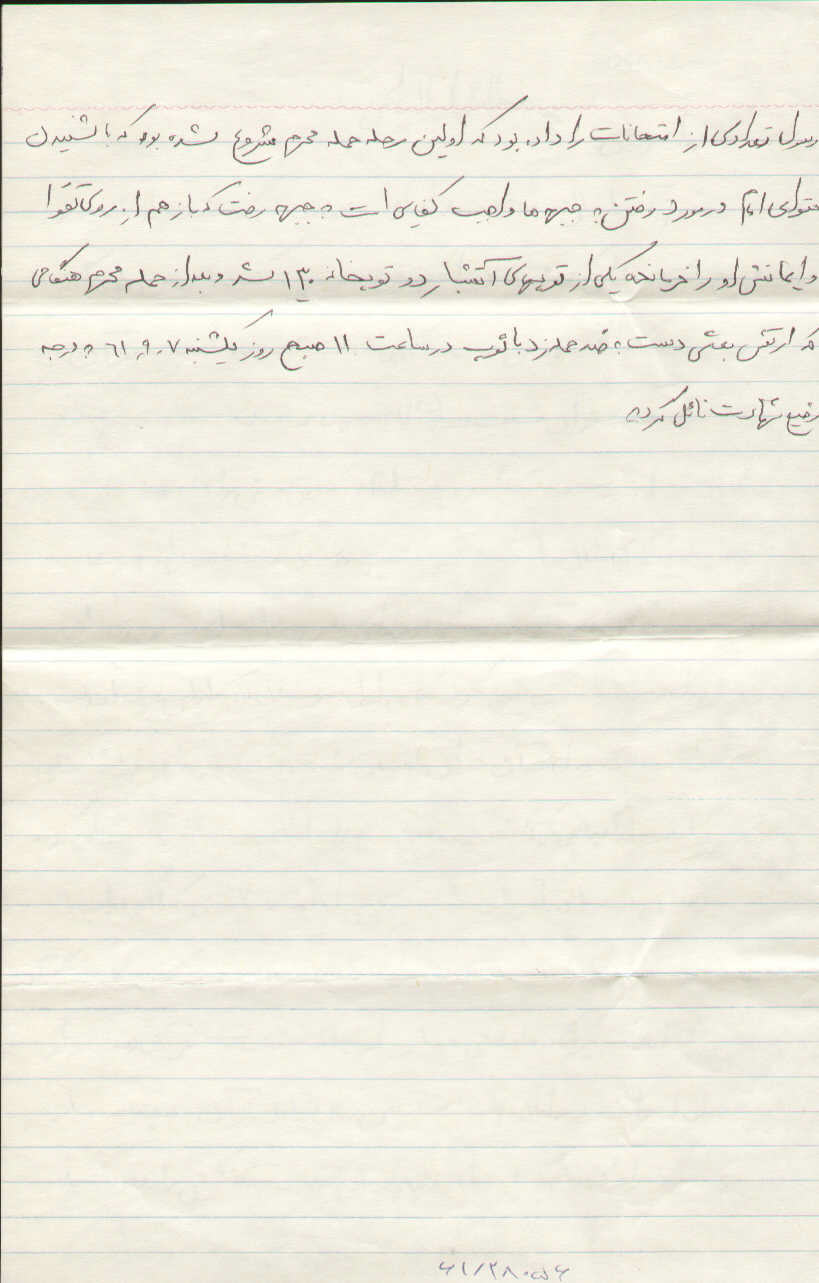 رسول تعدادی از امتحانات را داده بود که اولین مرحله حمله محرم شروع شده بود که با شنیدن
فتوای امام در مورد رفتن به جبهه ها واجب کفایی است به جبهه رفت که باز هم از روی تقوا
و ایمانش او را فرمانده یکی از توپهای آتشبار در توپخانه ۱۳۰ شد و بعد از حمله محرم هنگامی
که ارتش بعثی دست به ضد حمله زد با توپ در ساعت ۱۱ صبح روز یکشنبه ۷،۹،۶۱ به درجه
رفیع شهادت نائل گردید